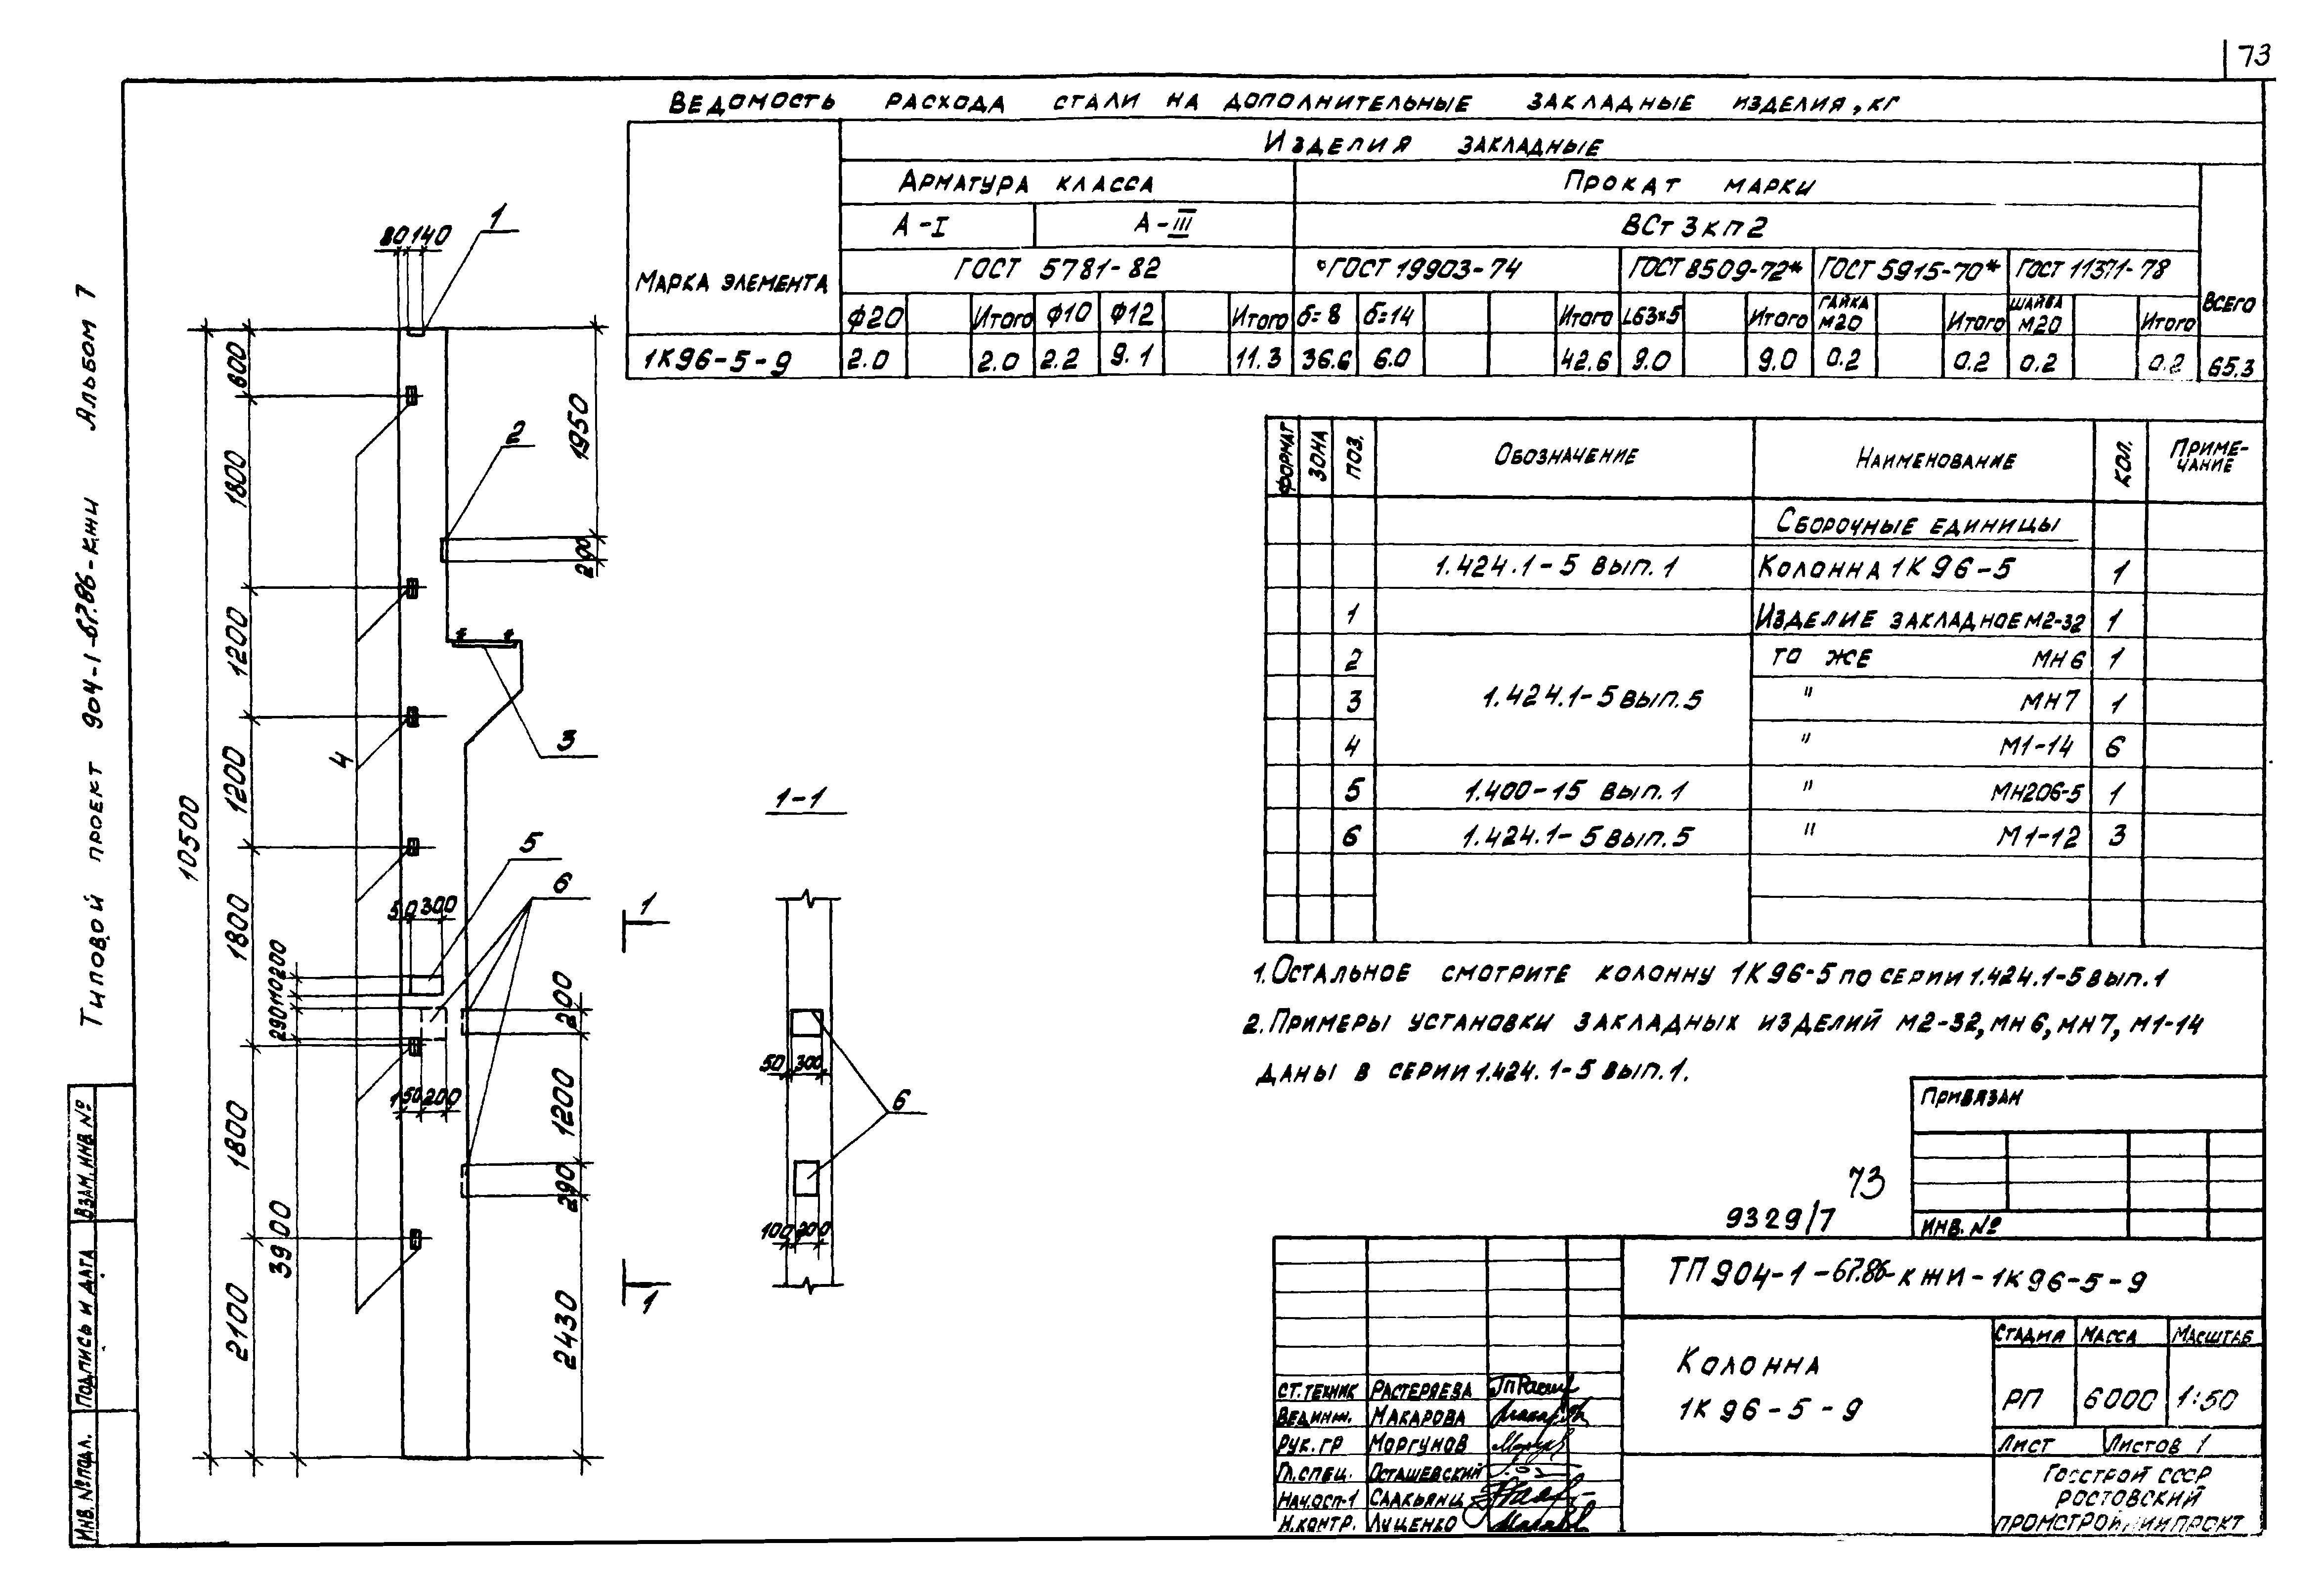 73
Ведомость расхода стали на дополнительные закладные изделия, кг
Марка элемента
Изделия закладные
Арматура класса
Прокат марки
Всего
А-I
А-III
ВСт3кп2
ГОСТ 5781-82
ГОСТ 19903-74
ГОСТ 8509-72*
ГОСТ 5915-70*
ГОСТ 11371-78
Ф20 Итого Ф10 Ф12 Итого б=8 б=14 Итого L63×5 Итого Гайка М20 Итого Шайба М20 Итого
1К96-5-9 2.0 2.0 2.2 9.1 11.3 36.6 6.0 42.6 9.0 9.0 0.2 0.2 0.2 0.2 65.3
Формат Зона Поз. Обозначение Наименование Кол. Примечание
Сборочные единицы
1.424.1-5 вып.1 Колонна 1К96-5 1
1 Изделие закладное М2-32 1
2 то же МН6 1
3 1.424.1-5 вып.5 " МН7 1
4 " М1-14 6
5 1.400-15 вып.1 " МН206-5 1
6 1.424.1-5 вып.5 " М1-12 3
1. Остальное смотрите колонну 1К96-5 по серии 1.424.1-5 вып.1
2. Примеры установки закладных изделий М2-32, МН6, МН7, М1-14
даны в серии 1.424.1-5 вып.1.
80 140
1
600
1800
1200
1200
1800
1800
2100
10500
3900
1950
200
2
3
4
5
6
50 300
200
110
290
150 200
200
1200
290
2430
1
1
1-1
50 300
6
100 200
Типовой проект 904-1-67.86-КЖИ Альбом 7
Взам. инв №
Подпись и дата
Инв. № подл.
Привязан
Инв. №
73
9329/7
ТП 904-1-67.86-КЖИ-1К96-5-9
Колонна
1К96-5-9
Стадия Масса Масштаб
РП 6000 1:50
Лист Листов 1
Госстрой СССР
Ростовский
Промстройниипроект
Ст.техник Растеряева
Вед.инж. Макарова
Рук.гр Моргунов
Гл.спец. Осташевский
Нач.осп-1 Саакьянц
Н.контр. Луценко